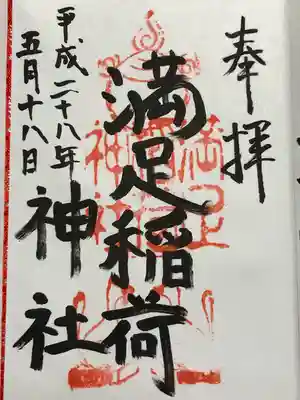 奉拝
満足稲荷
神社
平成二十八年
五月十八日
満足
神